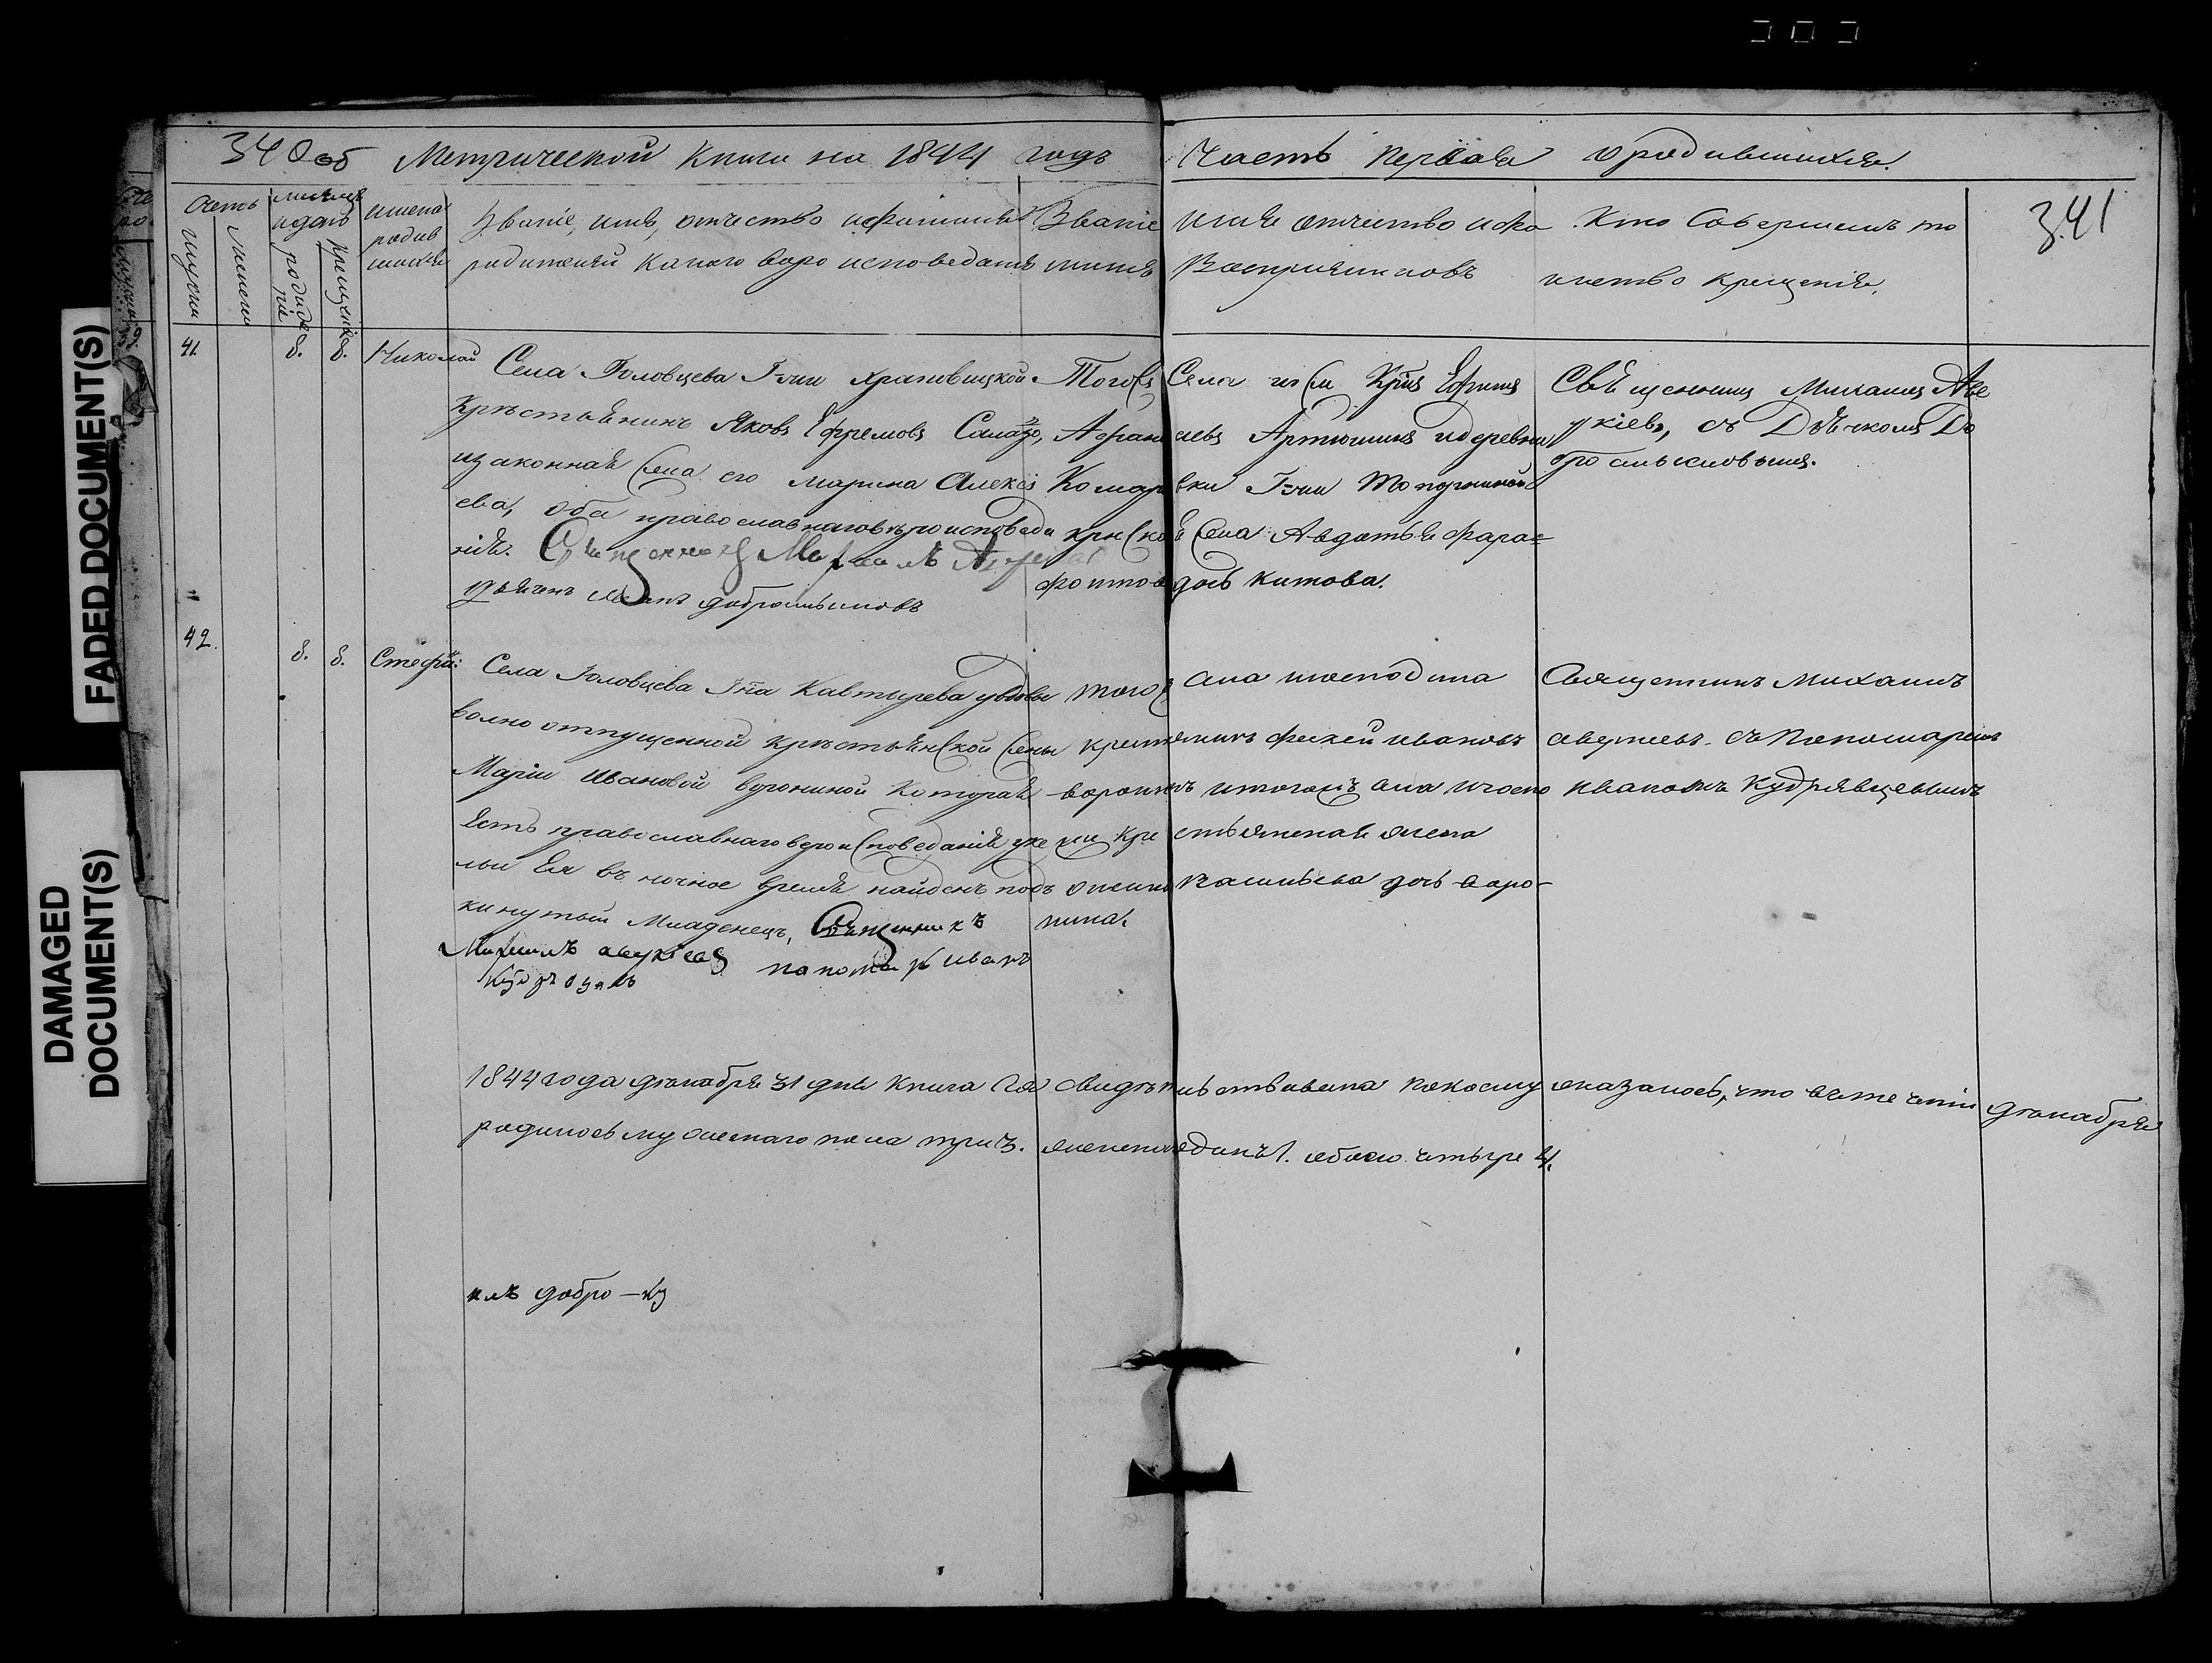 FADED DOCUMENT(S)
DAMAGED
DOCUMENT(S)
340 об Метрической Книги на 1844 годъ Часть Первая о родившихся. 341
Счетъ
мужеска
женска
месяцъ
и день
рождения
крещения
имена
родив
шихся
Званіе, имя, отчество и фамилия
родителей какого веро исповедания
Званіе имя отчество и фа
милия Восприемниковъ
Кто Совершилъ та
инство крещенія.
41. 8. 8. Николай
Села Головцева Гжи Храповицкой
Крестьянинъ Яковъ Ефремовъ
и законная жена его Марина Алексѣ
ева, оба православнаго вероисповеда
нія. Священникъ Михаилъ Авукіевъ
Дьячекъ добромысловъ
Тогожъ Села Ефимъ
Афанасьевъ Артюшинъ и деревни
Комаревки Гжи Топорниной
Крестьянская жена Авдотья Фара=
фонтова дочь Китова.
Священникъ Михаилъ Аве
укіевъ, съ Дьячкомъ До
бромысловымъ.
42. 8. 8. Стефа:
Села Головцева Гна Кавтырева у вдовы
волно отпущенной крестьянской жены
Маріи Ивановой Ворониной Которая
Есть православнаго вероисповеданія у ке
льи Ея въ ночное время найденъ подъ
кинутый Младенецъ, Священникъ
Михаилъ авукіевъ пономарь Иванъ
тогожъ села господина
крестьянинъ Фекей ивановъ
воронинъ и тогожъ села и госпо
жи крестьянская жена
васильева дочь воро-
нина.
Священникъ Михаилъ
авукиевъ съ Пономаремъ
иваномъ Кудрявцевымъ
1844 года декабря 31 дня Книга сія свидетельствована покоему оказалось, что втечении декабря
родилось мужескаго пола три 3. женска одинъ 1. обоего четыре 4.
илъ добро-ку